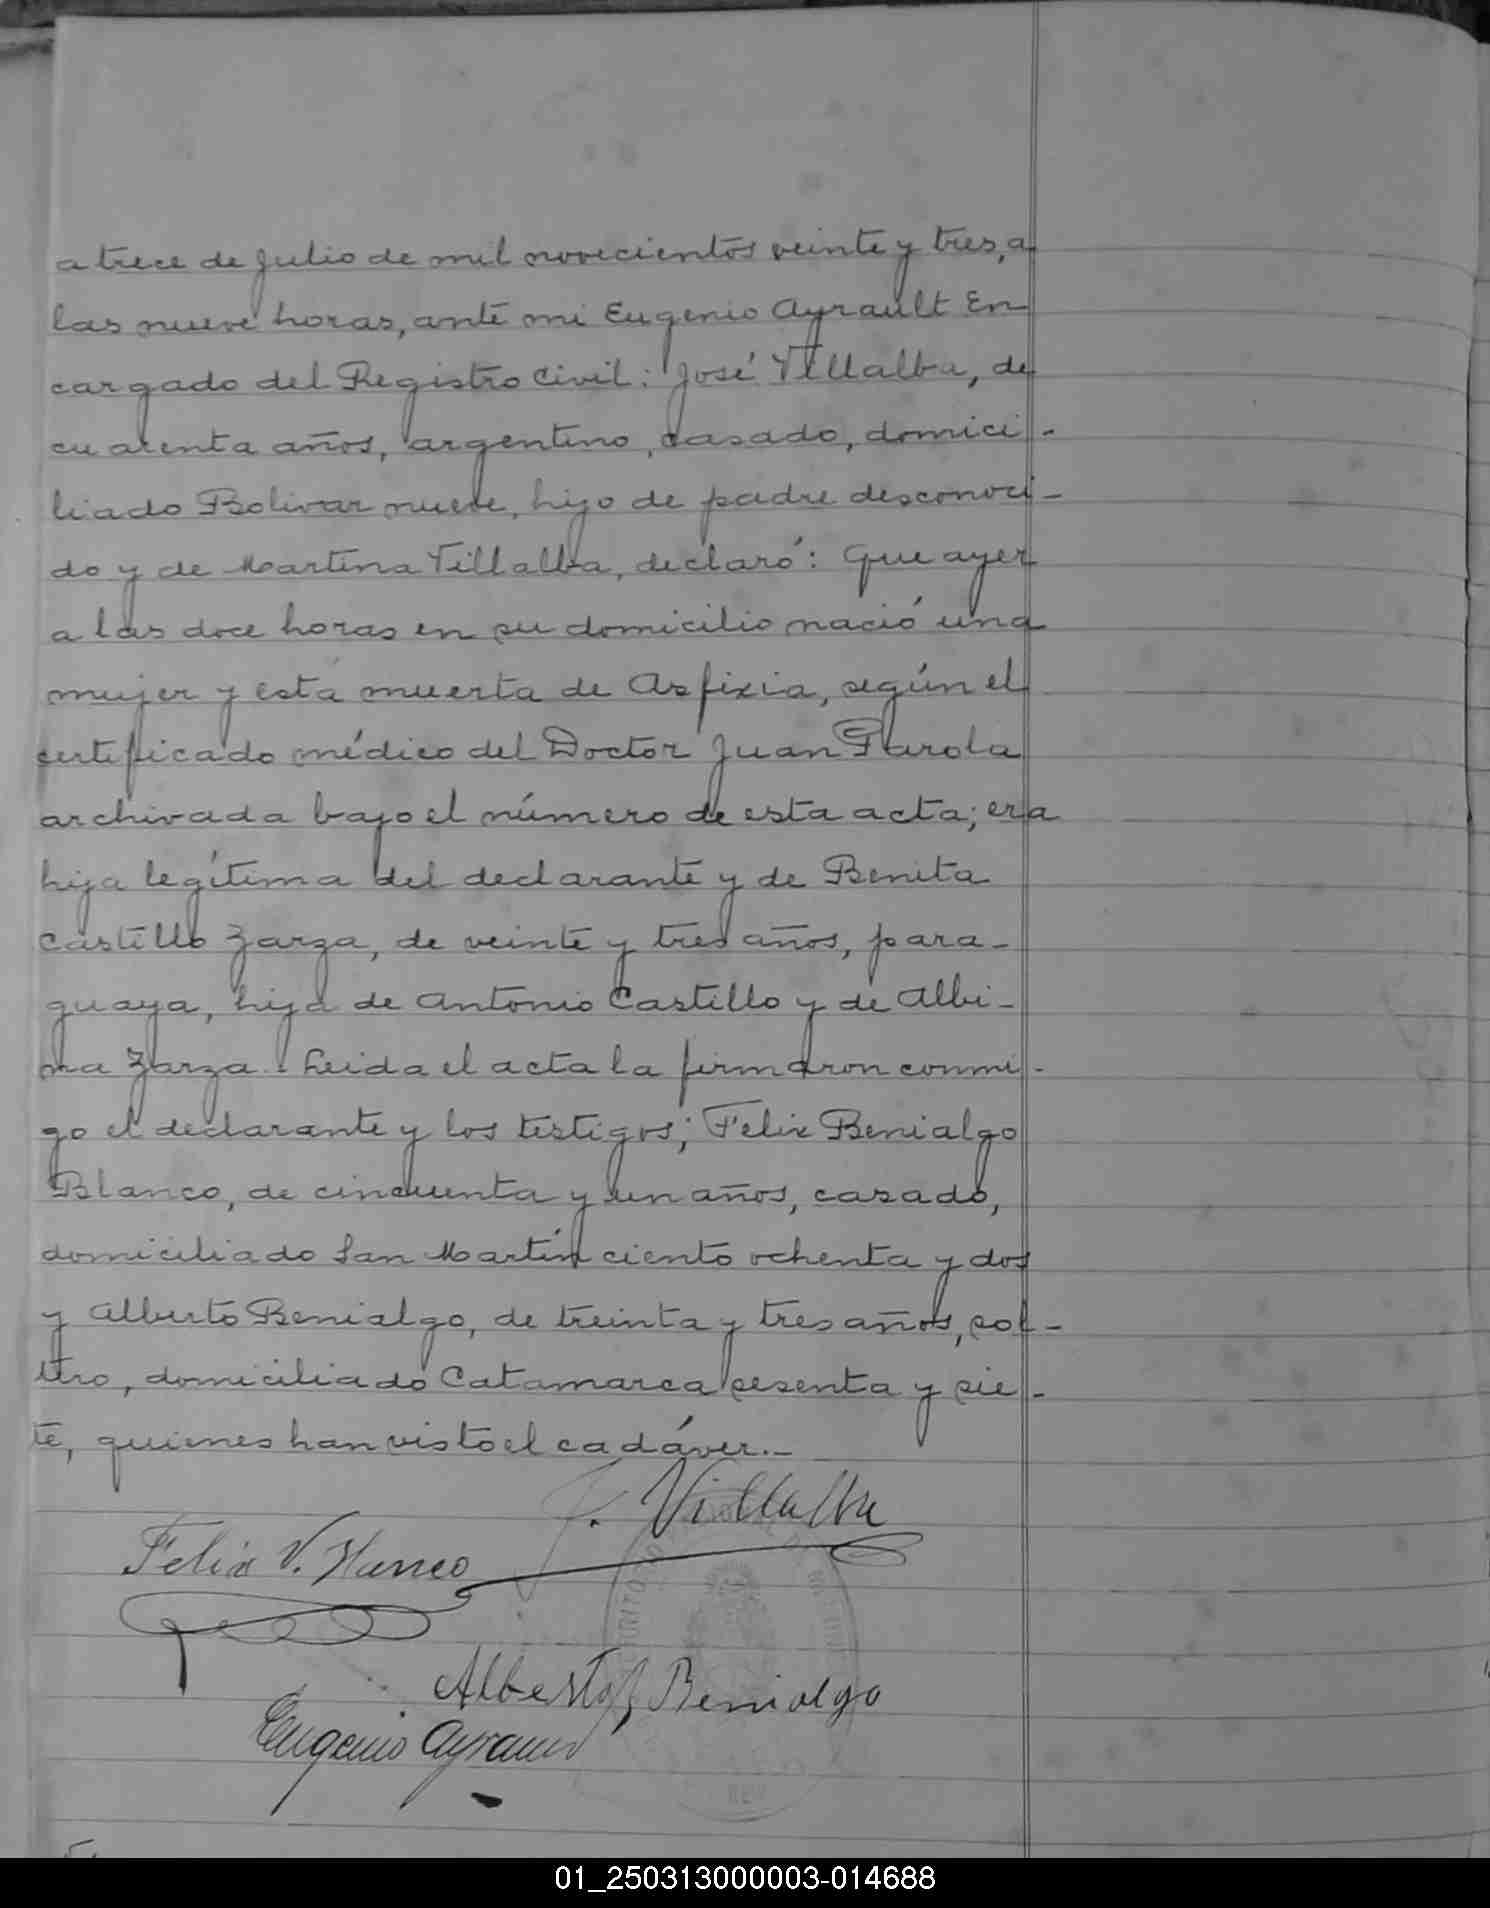 a trece de Julio de mil novecientos veinte y tres, a
las nueve horas, ante mi Eugenio Ayrault En
cargado del Registro Civil: José Villalba, de
cuarenta años, argentino, casado, domici-
liado Bolivar nueve, hijo de padre desconoci-
do y de Martina Villalba, declaró: Que ayer
a las doce horas en su domicilio nació una
mujer y esta muerta de Asfixia, según el
certificado médico del Doctor Juan Parola
archivada bajo el número de esta acta; era
hija legítima del declarante y de Benita
Castillo Zarza, de veinte y tres años, para-
guaya, hija de Antonio Castillo y de Albi-
na Zarza. Leida el acta la firmaron conmi-
go el declarante y los testigos; Felix Benialgo
Blanco, de cincuenta y un años, casado,
domiciliado San Martín ciento ochenta y dos
y Alberto Benialgo, de treinta y tres años, sol-
tero, domiciliado Catamarca sesenta y sie-
te, quienes han visto el cadáver.-
J. Villalba
Felix V.
Alberto Benialgo
Eugenio Ayrault
01_250313000003-014688